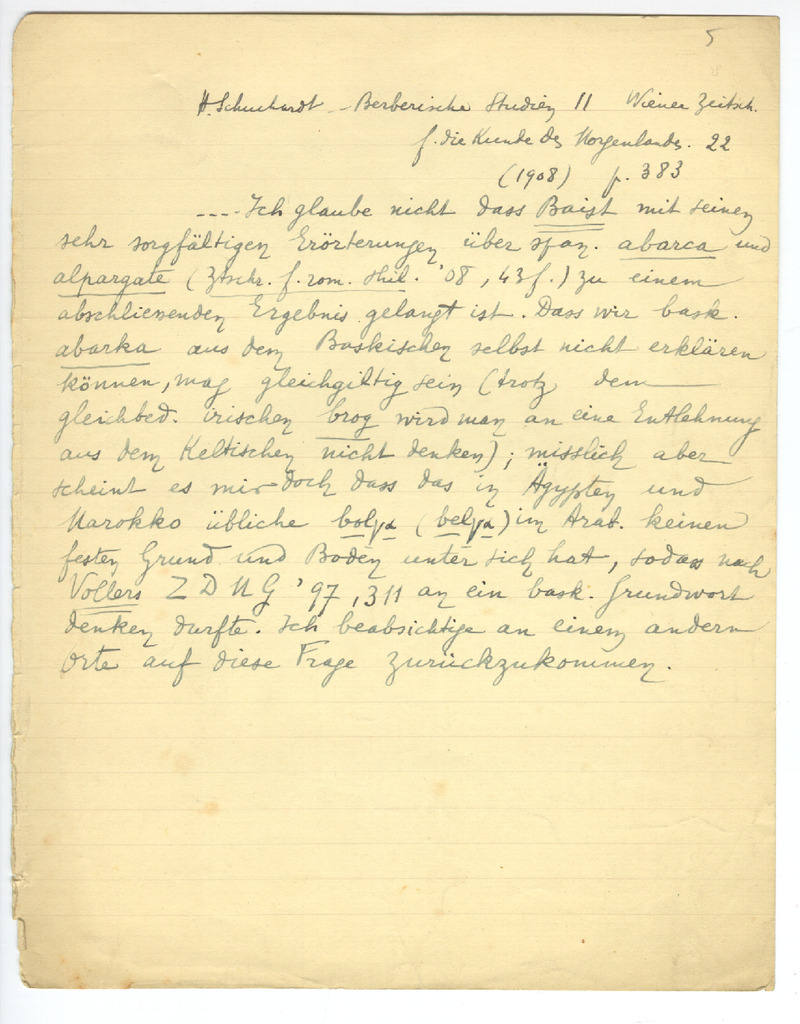 5
H. Schuchardt - Berberische Studien II Wiener Zeitsch.
f. die Kunde des Morgenlandes. 22
(1908) p. 383
---- Ich glaube nicht dass Baist mit seinen
sehr sorgfältigen Erörterungen über span. abarca und
alpargate (Ztschr. f. rom. Phil. '08, 43 f.) zu einem
abschliessenden Ergebnis gelangt ist. Dass wir bask.
abarka aus dem Baskischen selbst nicht erklären
können, mag gleichgiltig sein (trotz dem
gleichbed. irischen brog wird man an eine Entlehnung
aus dem Keltischen nicht denken); misslich aber
scheint es mir doch dass das in Ägypten und
Marokko übliche bolγa (belγa) im Arab. keinen
festen Grund und Boden unter sich hat, sodass nach
Vollers ZDMG '97, 311 an ein bask. Grundwort
denken durfte. Ich beabsichtige an einem andern
Orte auf diese Frage zurückzukommen.